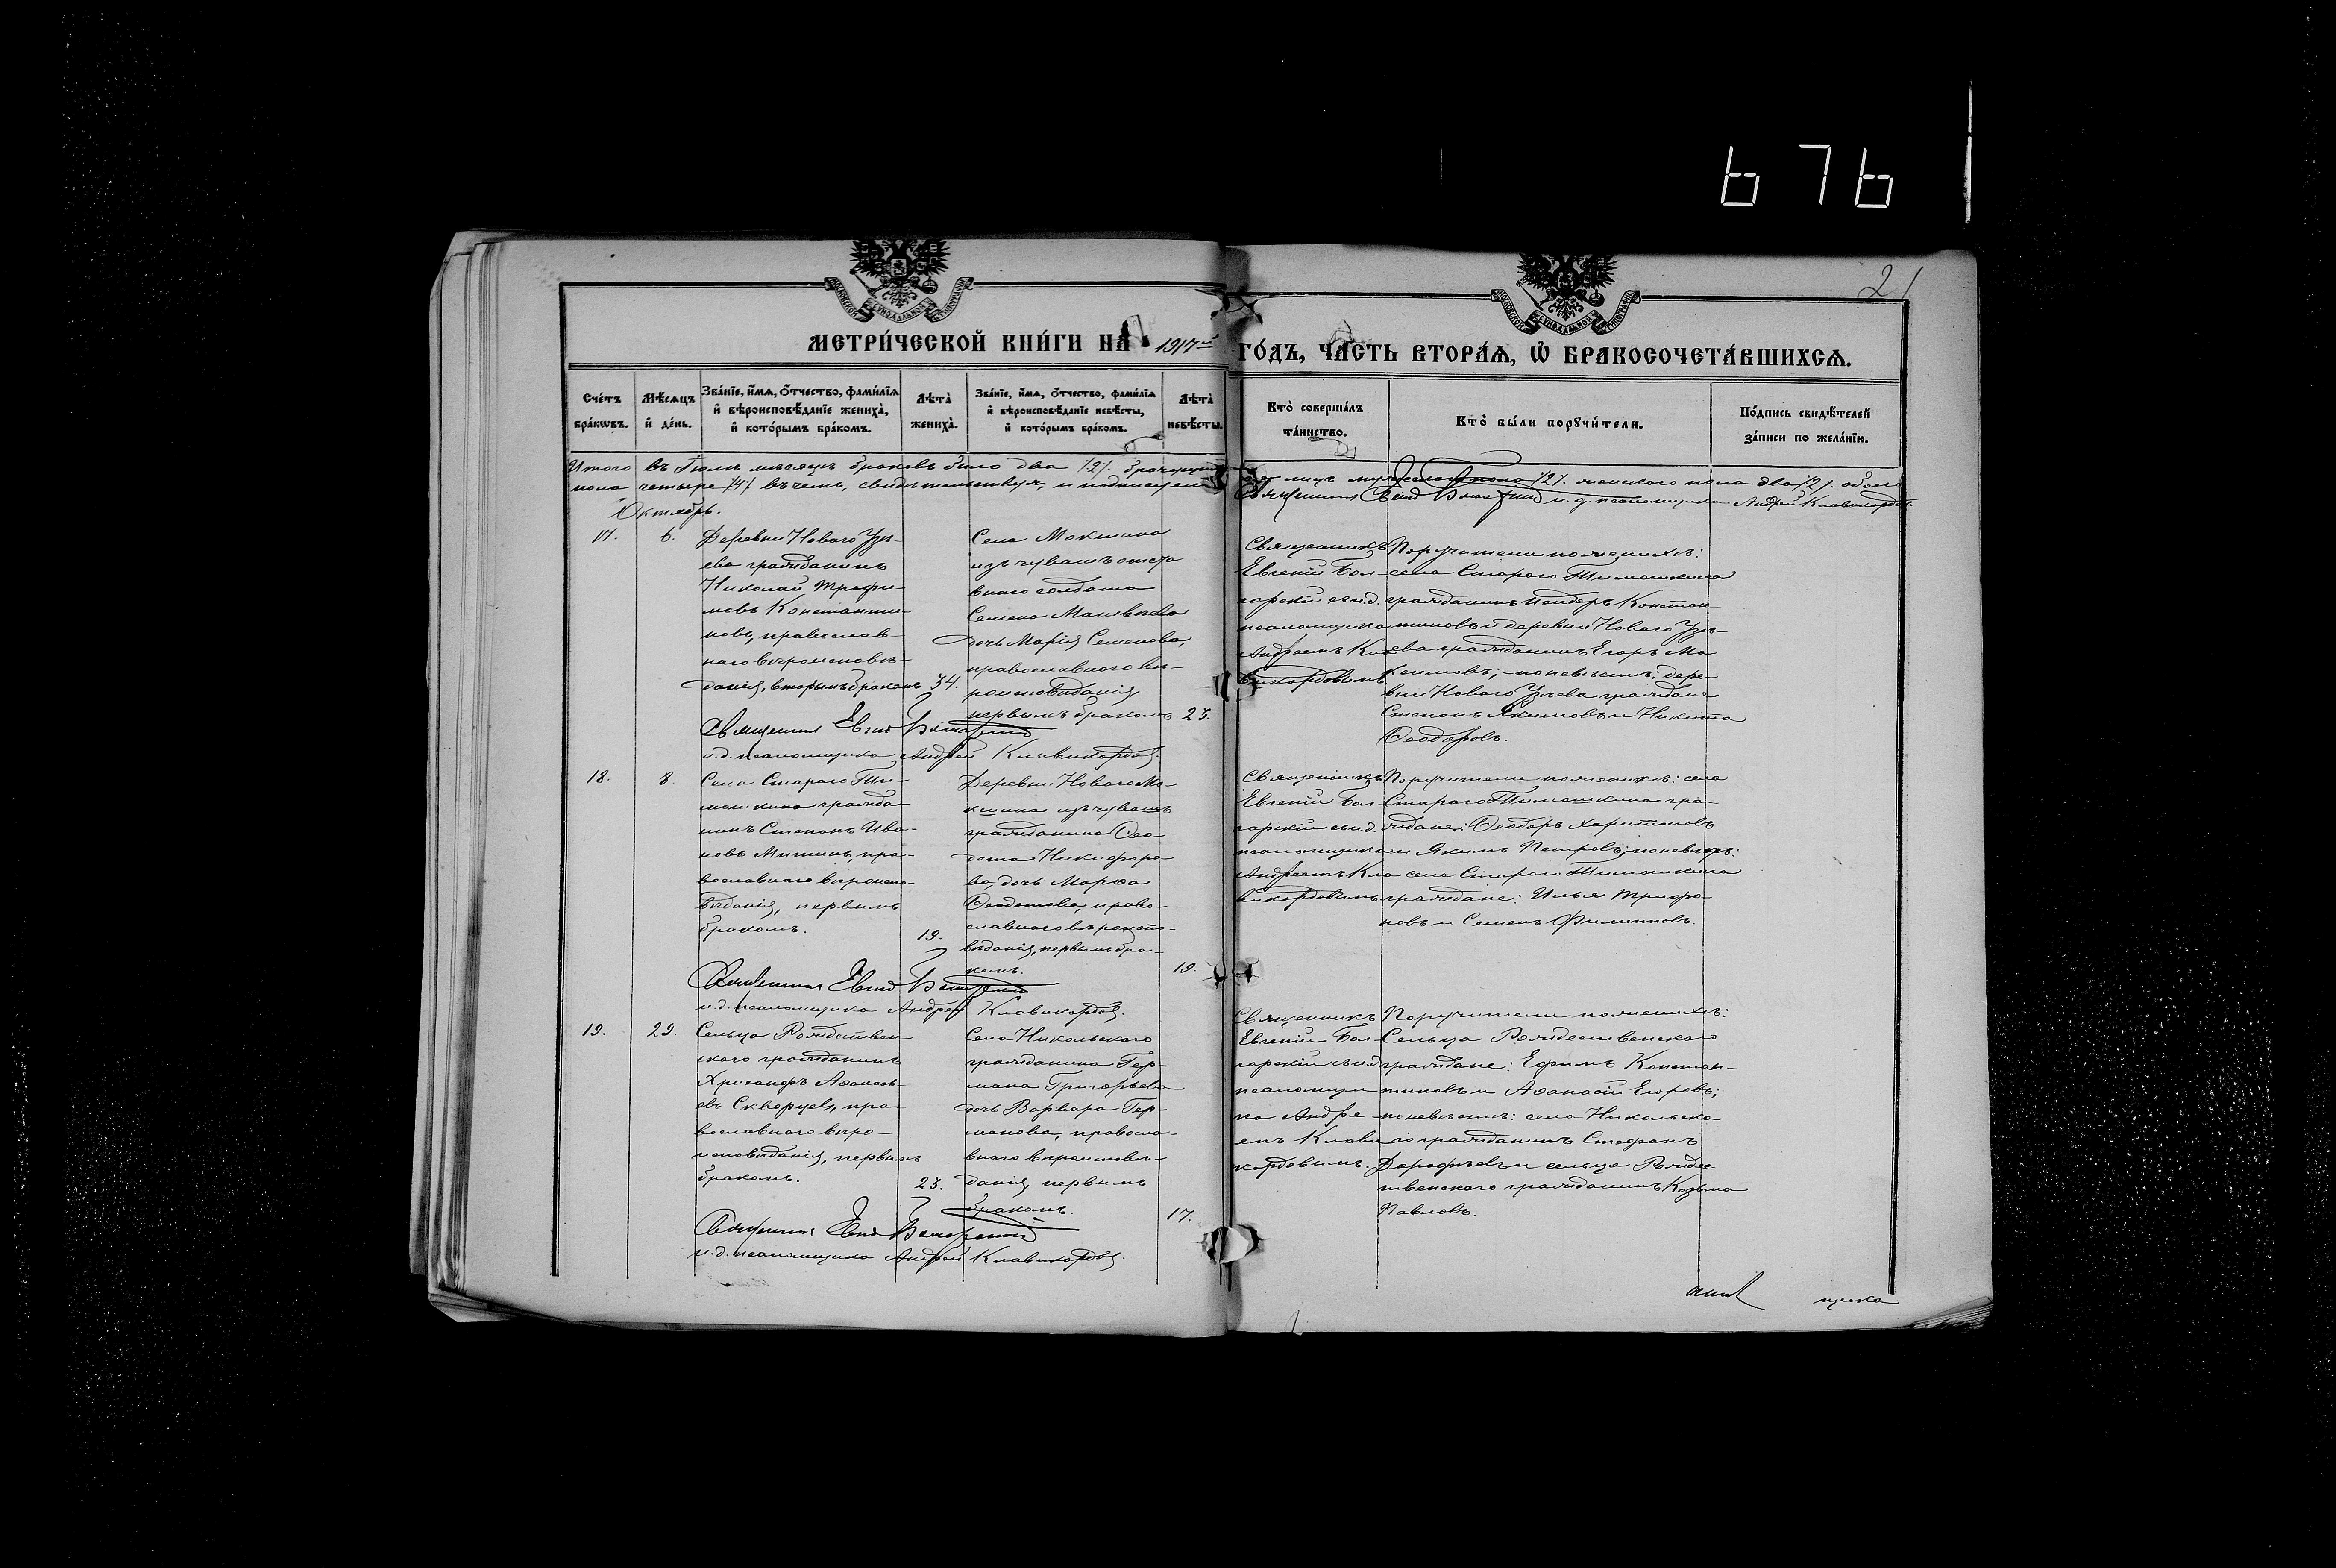 676
21
МЕТРИ́ЧЕСКОЙ КНИ́ГИ НА 1917 ГО́ДЪ, ЧА́СТЬ ВТОРА́Я, Ѡ БРАКОСОЧЕТА́ВШИХСЯ.
Сче́тъ бра́кѡвъ.
Мѣ́сяцъ и де́нь.
Зва́нїе, и́мя, о́тчество, фами́лїя и вѣроисповѣ́данїе жениха̀, и кото́рымъ бра́комъ.
Лѣта̀ жениха̀.
Зва́нїе, и́мя, о́тчество, фами́лїя и вѣроисповѣ́данїе невѣ́сты, и кото́рымъ бра́комъ.
Лѣта̀ невѣ́сты.
Кто̀ соверша́лъ та́инство.
Кто̀ бы́ли порꙋчи́тели.
По́дпись свидѣ́телей за́писи по жела́нїю.
Итого въ Іюлѣ мѣсяцѣ браковъ было два /2/
пола четыре /4/ въ чемъ, свидѣтельствуя, и подписуемся
Священникъ и. д. псаломщика Андрей Клавикордовъ.
Октябрь.
17.
6.
Деревни Новаго Узѣ-
ева гражданинъ
Николай Трофи-
мовъ Константи-
новъ, православ-
наго вѣроисповѣ-
данія, вторымъ бракомъ
34.
Села Мокшина
изъ чувашъ
внаго солдата
Семена Матвѣева
дочь Марія Семенова,
православнаго вѣ-
роисповѣданія
первымъ бракомъ
23.
Священникъ
Евгеній Бол-
гарскій съ и. д.
псаломщика
Андреемъ Кла-
викордовымъ
Поручители по женихѣ:
села Стараго Тимошкина
гражданинъ Констан-
тиновъ и деревни Новаго Узѣ-
ева гражданинъ Егоръ Ма
ксимовъ; по невѣстѣ: дере-
вни Новаго Узѣева граждане
Степанъ Якимовъ и Никита
Ѳеодоровъ.
и. д. псаломщика Андрей Клавикордовъ.
18.
8.
Села Стараго Ти-
мошкина гражда-
нинъ Степанъ Ива-
новъ Митинъ, пра-
вославнаго вѣроиспо-
вѣданія, первымъ
бракомъ.
19.
Деревни Новаго Мо-
кшина изъ чувашъ
гражданина Ѳео-
дота Никифоро-
ва, дочь Марѳа
Ѳеодотова, право-
славнаго вѣроиспо-
вѣданія, первымъ бра-
комъ.
19.
Священникъ
Евгеній Бол-
гарскій съ и. д.
псаломщика
Андреемъ Кла
викордовымъ
Поручители по женихѣ: села
Стараго Тимошкина гра-
ждане: Ѳеодоръ Харитоновъ
и Якимъ Петровъ; по невѣстѣ:
села Стараго Тимошкина
граждане: Илья Трифо-
новъ и Семенъ Филипповъ.
и. д. псаломщика Андрей Клавикордовъ.
19.
29.
Сельца Рождествен-
скаго гражданинъ
Хрисанфъ Аѳанась-
евъ Скворцовъ, пра-
вославнаго вѣро-
исповѣданія, первымъ
бракомъ.
23.
Села Никольскаго
гражданина Гер-
мана Григорьева
дочь Варвара Гер-
манова, правосла-
внаго вѣроисповѣ-
данія, первымъ
бракомъ.
17.
Священникъ
Евгеній Бол-
гарскій съ и. д.
псаломщи
ка Андре-
емъ Клави
кордовымъ.
Поручители по женихѣ:
Сельца Рождественскаго
граждане: Ефимъ Констан-
тиновъ и Аѳанасій Егоровъ;
по невѣстѣ: села Никольска
го гражданинъ Стефанъ
Дорофѣевъ и сельца Рождес
твенскаго гражданинъ Козьма
Павловъ.
и. д. псаломщика Андрей Клавикордовъ.
щика